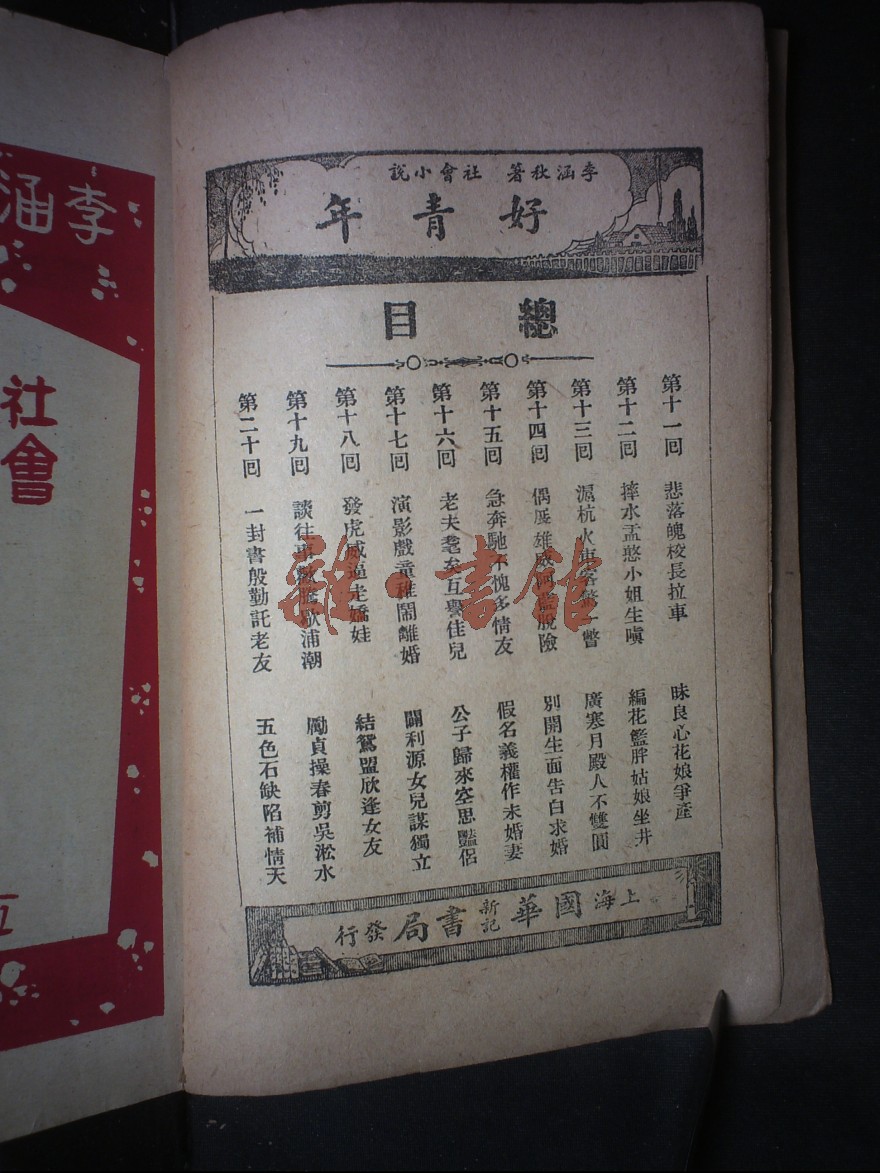 李涵
社會
李涵秋著 社會小說
好青年
總目
第十一回 悲落魄校長拉車 昧良心花娘爭產
第十二回 摔水盂憨小姐生嗔 編花籃胖姑娘坐井
第十三回 滬杭火車 一瞥 廣寒月殿人不雙圓
第十四回 偶展雄威 脫險 別開生面告白求婚
第十五回 急奔馳不愧多情友 假名義權作未婚妻
第十六回 老夫耄矣互譽佳兒 公子歸來空思豔侶
第十七回 演影戲童稚鬧離婚 闢利源女兒謀獨立
第十八回 發虎威逼走嬌娃 結鴛盟欣逢女友
第十九回 談往事 歇浦潮 勵貞操春剪吳淞水
第二十回 一封書殷勤託老友 五色石缺陷補情天
上海國華新記書局發行
雜·書館